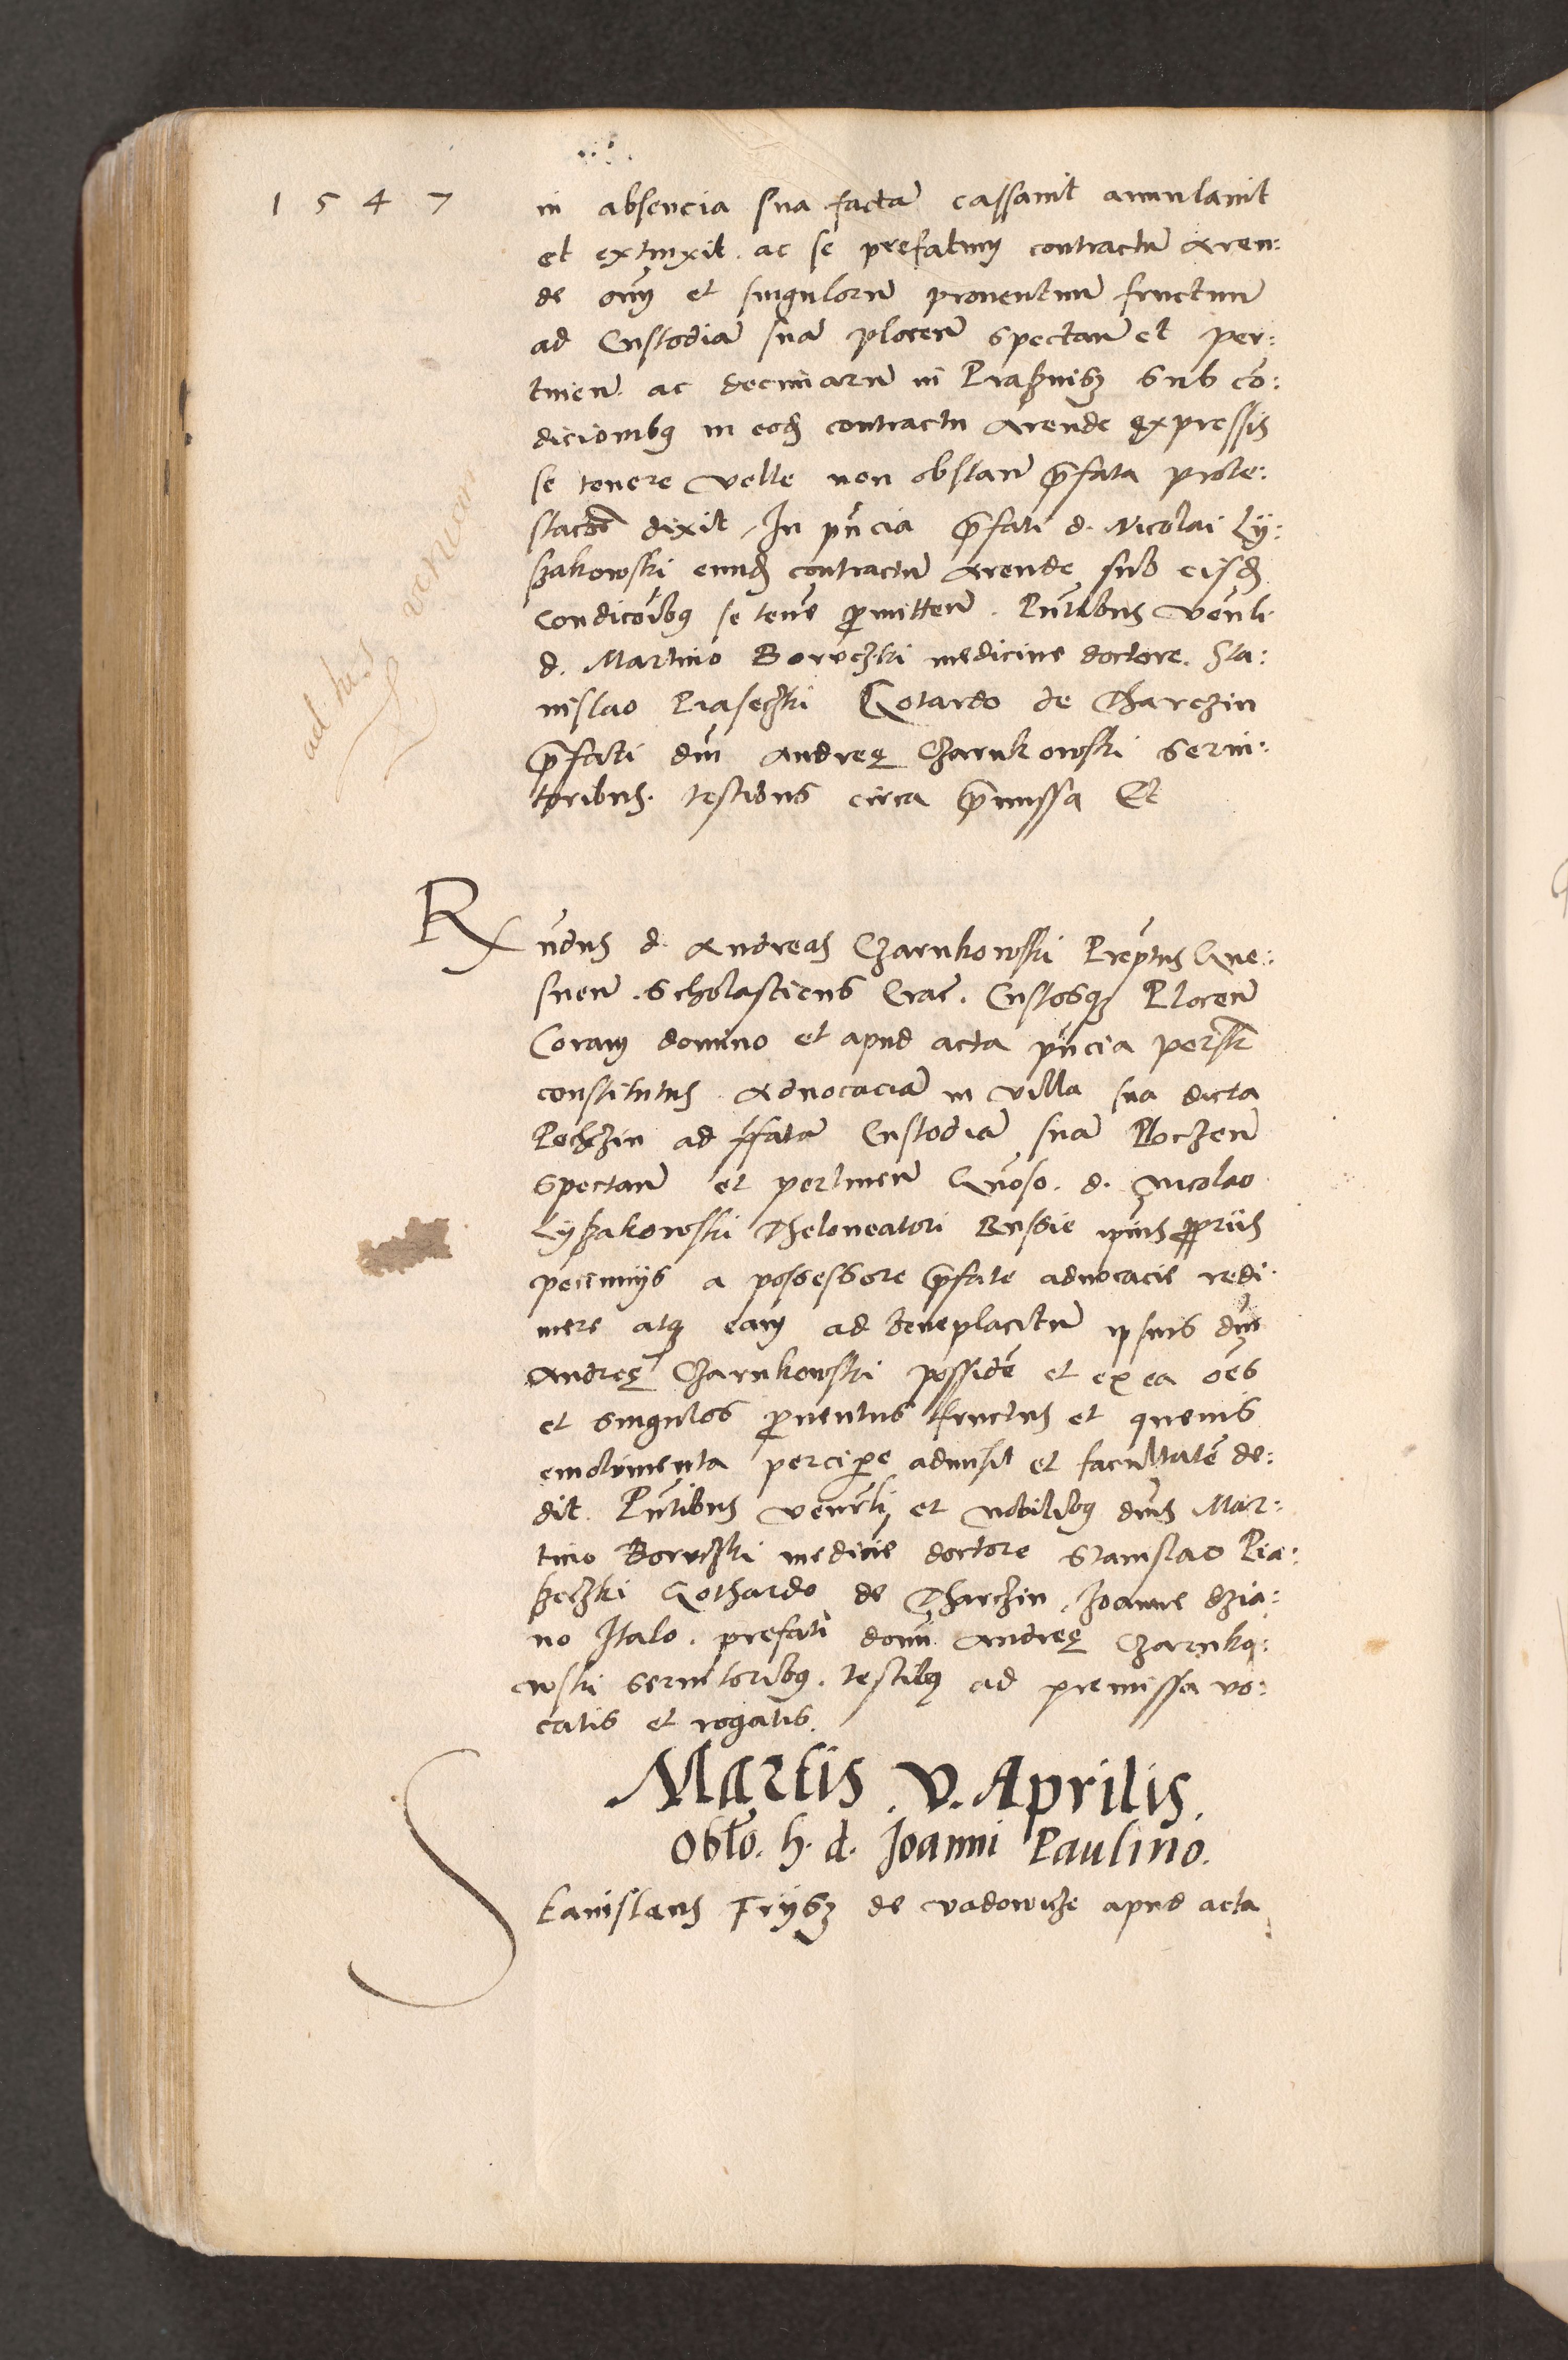 1 5 4 7
in absencia sua factã cassavit annulavit
et extinxit. ac se prefatum contractũ Aren:
de oĩm et singulorũ proventuum fructuum
ad Custodiã suã plocen̄ spectan̄ et per:
tinen̄. ac decimarũ in Praßnisz sub cõ:
dicionibus in eodẽ contractu Arende expressis
se tenere velle non obstan̄ p̄fata prote:
stacõe dixit. In pñcia p̄fati d. Nicolai Ly:
ßakowski eundẽ contractũ Arende sub eisdẽ
condicõibus se tenẽ promitten̄. Pñtibus Venli
d. Martino Boruczki medicine doctore. Sta:
nislao Piaseczki Gotardo de Tharczin
p̄fati dñi Andreę Czarnkowski servi:
toribus. testibus circa p̄missa Et
ad has
Rñdus d. Andreas Czarnkowski Preptus Gne:
snen̄. Scholasticus Crac̃. Custosque Plocen̄
Coram domino et apud acta pñcia perslr
constitutus Advocaciã in villa sua dicta
Pechzin ad p̄fatã Custodiã suã Ploczen̄
spectan̄ et pertinen̄ Gñoso. d. Nicolao
Lyßakowski Theloneatori Russie ipius propriis
pecuniis a possessore p̄fate advocacie redi:
mere atque eam ad beneplacitũ ipsius dñi
Andreę Czarnkowski possidẽ et ex ea oẽs
et singulos proventus fructus et quevis
emolumenta percipere admisit et facultatẽ de:
dit. Pñtibus Venrli et nobilibus dñis Mar:
tino Boruczki medicie doctore Stanislao Pia:
ßeczki Gothardo de Tharczin, Joanne dzia:
no Italo. prefati domi Andreę Czarnko:
wski servitoribus. testibus ad premissa vo:
catis et rogatis.
Martis . V. Aprilis.
Obłõ. h. d. Joanni Paulino.
Stanislaus Frÿsz de Vadowicze apud acta